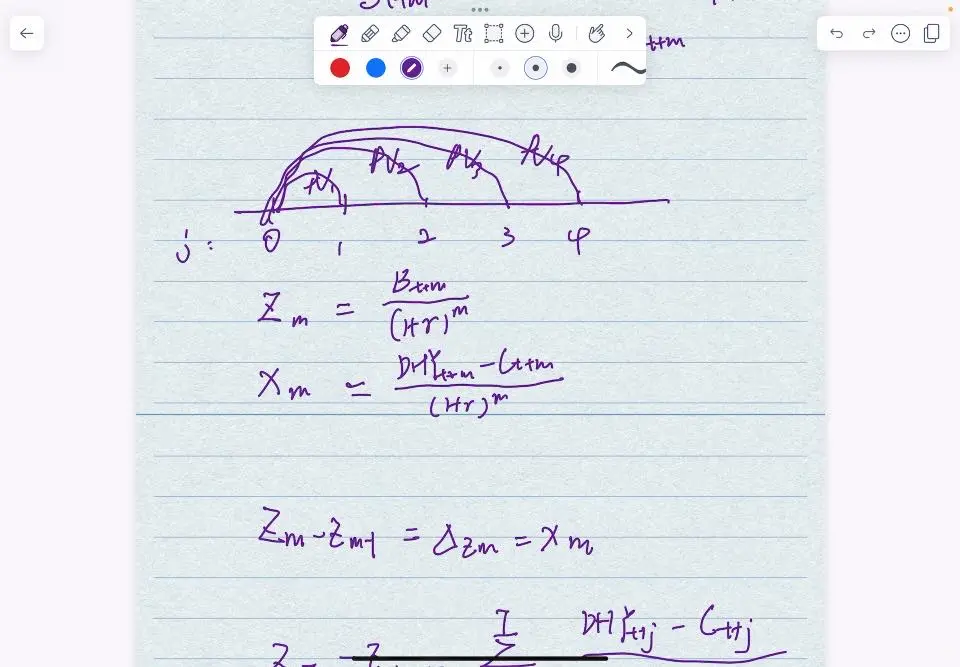 Tt
t+m
PV₁ PV₂ PV₃ PV₄
j : 0 1 2 3 4
Z_m = B_{t+m} / (1+r)^m
X_m = (DHY_{t+m} - C_{t+m}) / (1+r)^m
Z_m - Z_{m-1} = Δ_{Zm} = X_m
I
Σ DHY_{t+j} - C_{t+j}